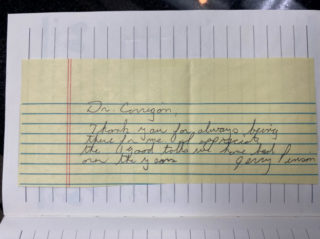 Dr. Corrigan,
Thank you for always being
there for me. I appreciate
the good talks we have had
over the years
Jerry